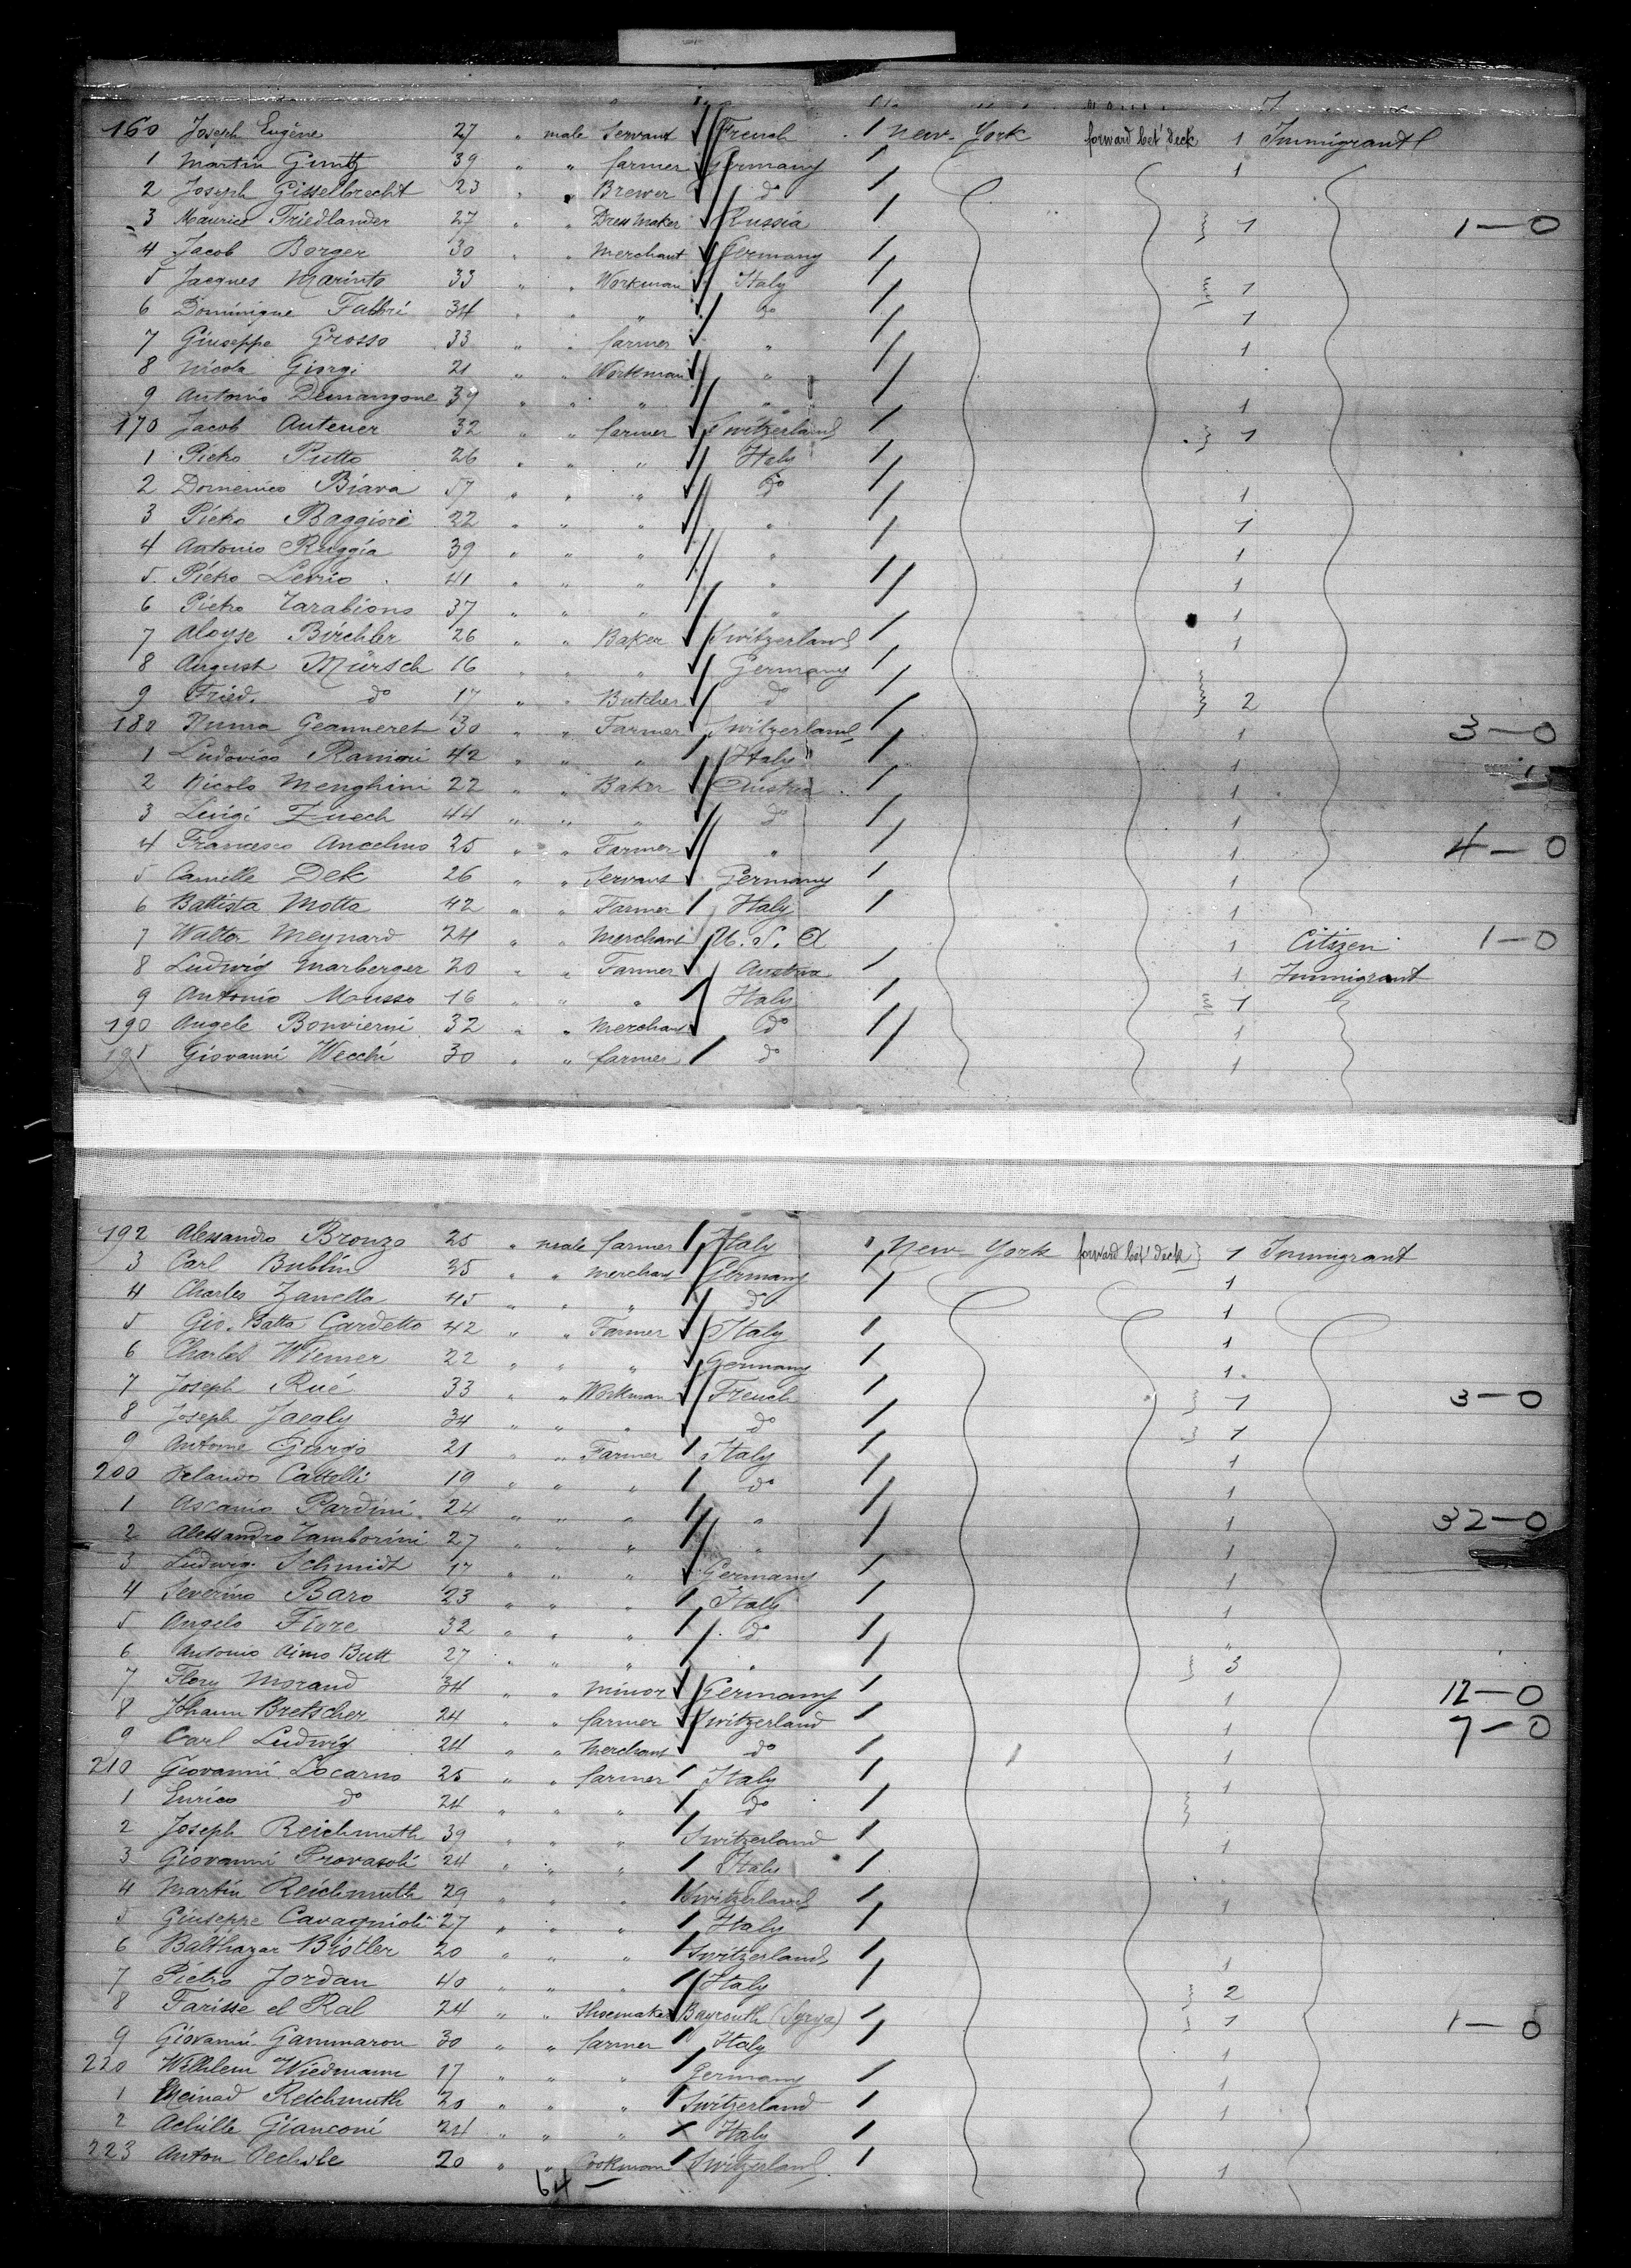 160 Joseph Eugène 27 " male Servant French 1 New-York forward bet' deck 1 Immigrant
1 Martin Guntz 39 " " farmer Germany 1
2 Joseph Gisselbrecht 23 " " Brewer do
3 Maurice Friedlander 27 " " Dress Maker Russia 1 1—0
4 Jacob Berger 30 " " Merchant Germany
5 Jacques Marinto 33 " " Workman Italy 1
6 Dominique Fabbri 34 " " " do 1
7 Giuseppe Grosso 33 " " farmer " 1
8 Nicola Giorgi 21 " " Workman "
9 Antonio Demangone 39 " " " " 1
170 Jacob Autener 32 " " farmer Switzerland 1
1 Pietro Putto 26 " " " Italy
2 Domenico Biava 57 " " " do 1
3 Pietro Baggiore 22 " " " " 1
4 Antonio Ruggia 39 " " " " 1
5 Pietro Levrio 41 " " " " 1
6 Pietro Zarabions 37 " " " " 1
7 Aloyse Birchler 26 " " Baker Switzerland 1
8 August Mürsch 16 " " " Germany
9 Fried. do 17 " " Butcher do 2
180 Numa Geanneret 30 " " Farmer Switzerland 1 3—0
1 Ludovico Ramieri 42 " " " Italy 1
2 Nicolo Menghini 22 " " Baker Austria 1
3 Luigi Zuech 44 " " " do 1
4 Francesco Ancelmo 25 " " Farmer " 1 4—0
5 Camille Dek 26 " " Servant Germany 1
6 Battista Motta 42 " " Farmer Italy 1
7 Walter Meynard 24 " " Merchant U. S. A 1 Citizen 1—0
8 Ludwig Marberger 20 " " Farmer Austria 1 Immigrant
9 Antonio Mousso 16 " " " Italy 1
190 Angele Bonvierni 32 " " Merchant do 1
191 Giovanni Wecchi 30 " " farmer do 1
192 Alessandro Bronzo 25 " male farmer Italy New-York forward bet' deck 1 Immigrant
3 Carl Bublin 35 " " Merchant Germany 1
4 Charles Zanella 45 " " " do 1
5 Gio. Batta Gardetto 42 " " Farmer Italy 1
6 Charles Wiemer 22 " " " Germany 1
7 Joseph Rué 33 " " Workman French 1 3—0
8 Joseph Jaegly 34 " " " do 1
9 Antoine Giorgio 21 " " Farmer Italy 1
200 Orlando Cattelli 19 " " " do 1
1 Ascanio Pardini 24 " " " " 1 32—0
2 Alessandro Tamborini 27 " " " " 1
3 Ludwig Schmidt 17 " " " Germany 1
4 Severino Baro 23 " " " Italy 1
5 Angelo Fiore 32 " " " do "
6 Antonio Aimo Butt 27 " " " " 3
7 Flory Morand 34 " " Minor Germany 1 12—0
8 Johann Bretscher 24 " " farmer Switzerland 1 7—0
9 Carl Ludwig 24 " " Merchant do 1
210 Giovanni Locarno 25 " " farmer Italy 1
1 Enrico do 24 " " " do
2 Joseph Reichmuth 39 " " " Switzerland 1
3 Giovanni Provasoli 24 " " " Italy
4 Martin Reichmuth 29 " " " Switzerland 1
5 Giuseppe Cavagnioli 27 " " " Italy
6 Balthazar Bistler 20 " " " Switzerland 1
7 Pietro Jordan 40 " " " Italy 2
8 Farisse el Ral 24 " " Shoemaker Bayrouth (Syrya) 1 1—0
9 Giovanni Gammaron 30 " " farmer Italy 1
220 Wilhlem Wiedmann 17 " " " Germany 1
1 Meinad Reichmuth 20 " " " Switzerland 1
2 Achille Gianconi 24 " " " Italy
223 Anton Oechsle 20 " " Cookman Switzerland 1
64 —